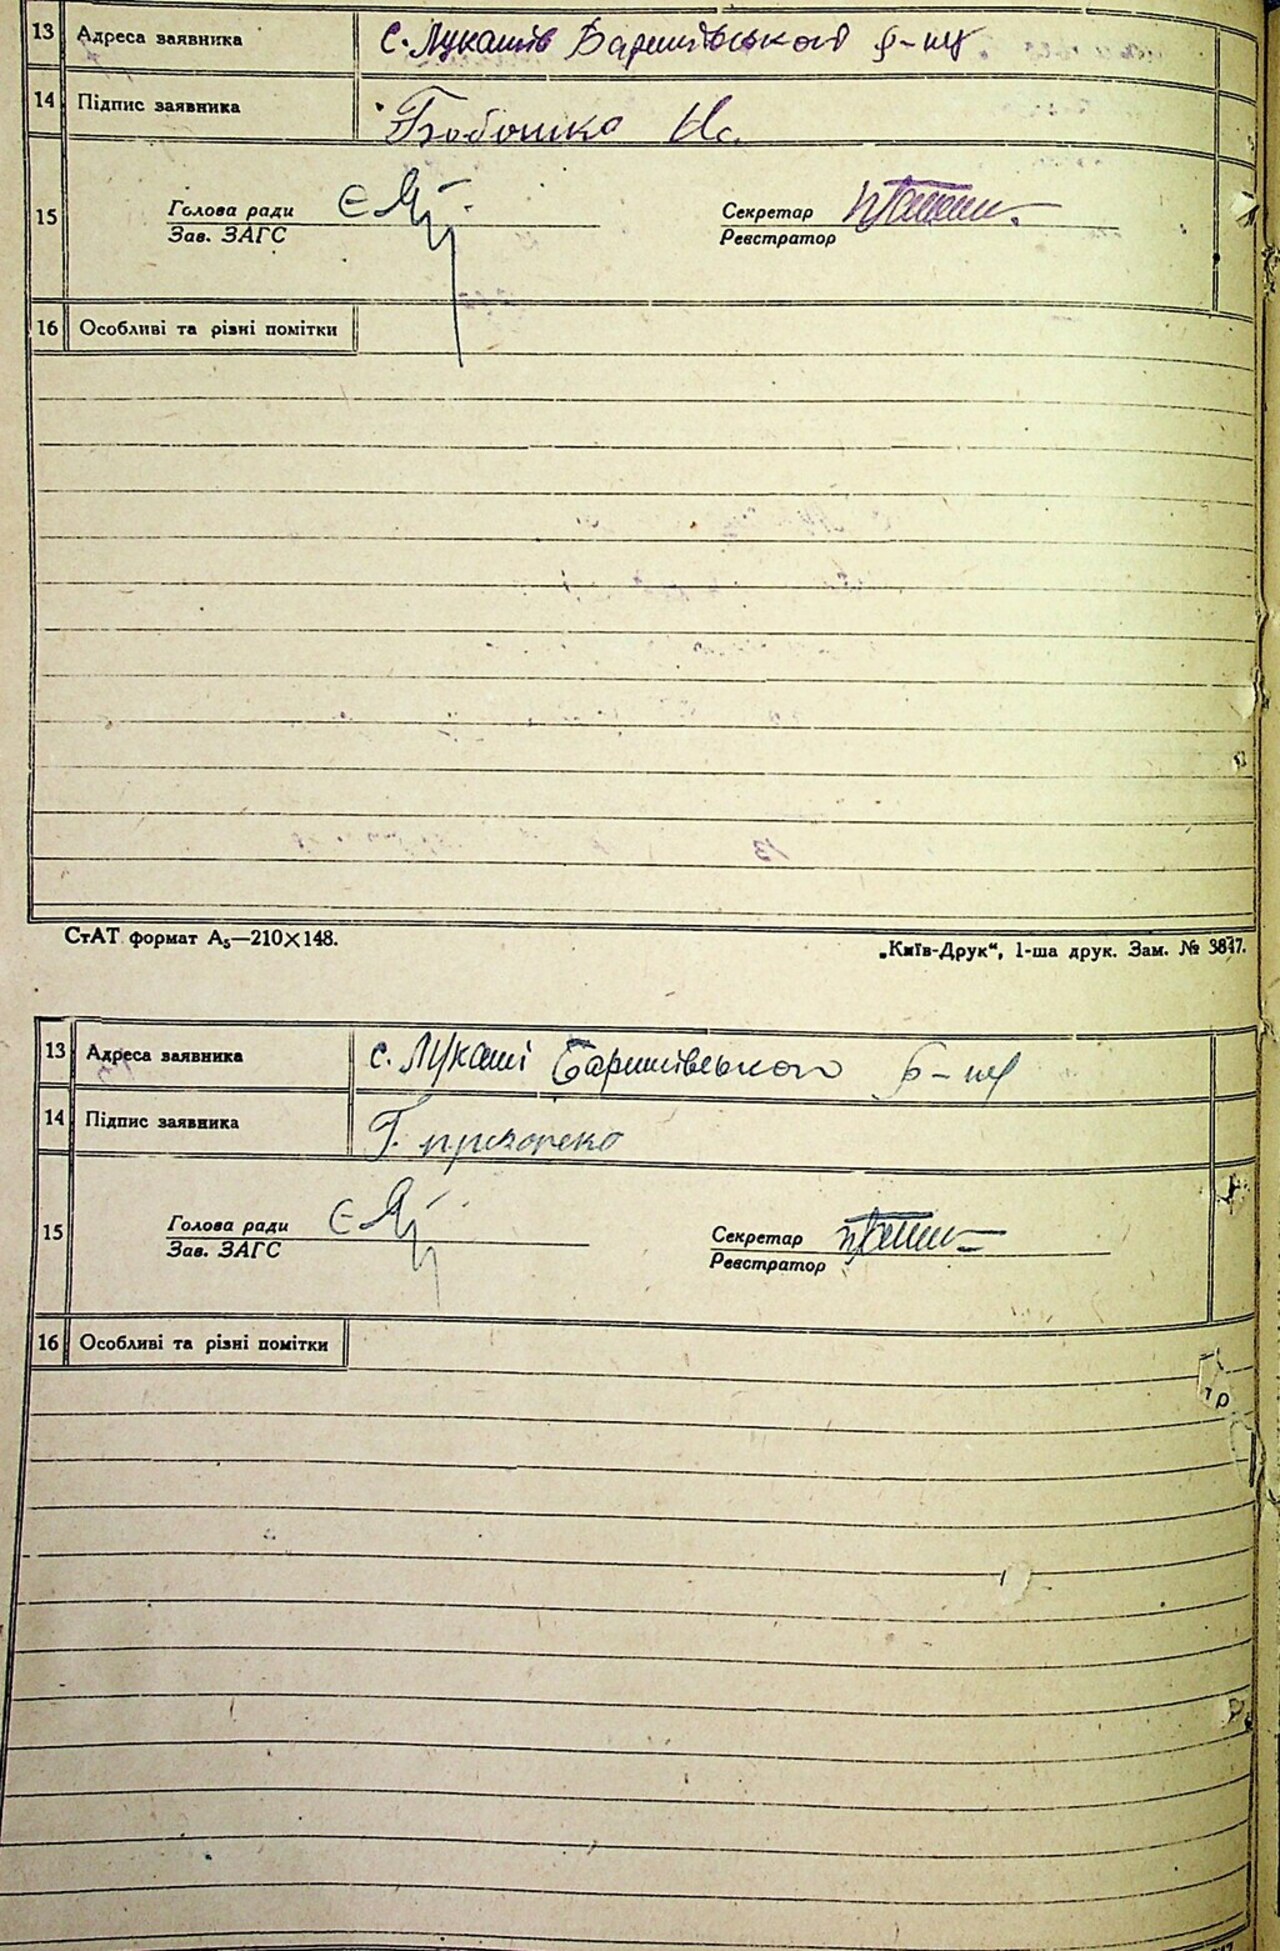 13 Адреса заявника с. Лукашів Баришівського р-ну
14 Підпис заявника Бобошко Нс.
15 Голова ради Секретар
Зав. ЗАГС Реєстратор
16 Особливі та різні помітки
СтАТ формат А₅—210×148. „Київ-Друк“, 1-ша друк. Зам. № 3847.
13 Адреса заявника с. Лукаші Баришівського р-ну
14 Підпис заявника Г.
15 Голова ради Секретар
Зав. ЗАГС Реєстратор
16 Особливі та різні помітки